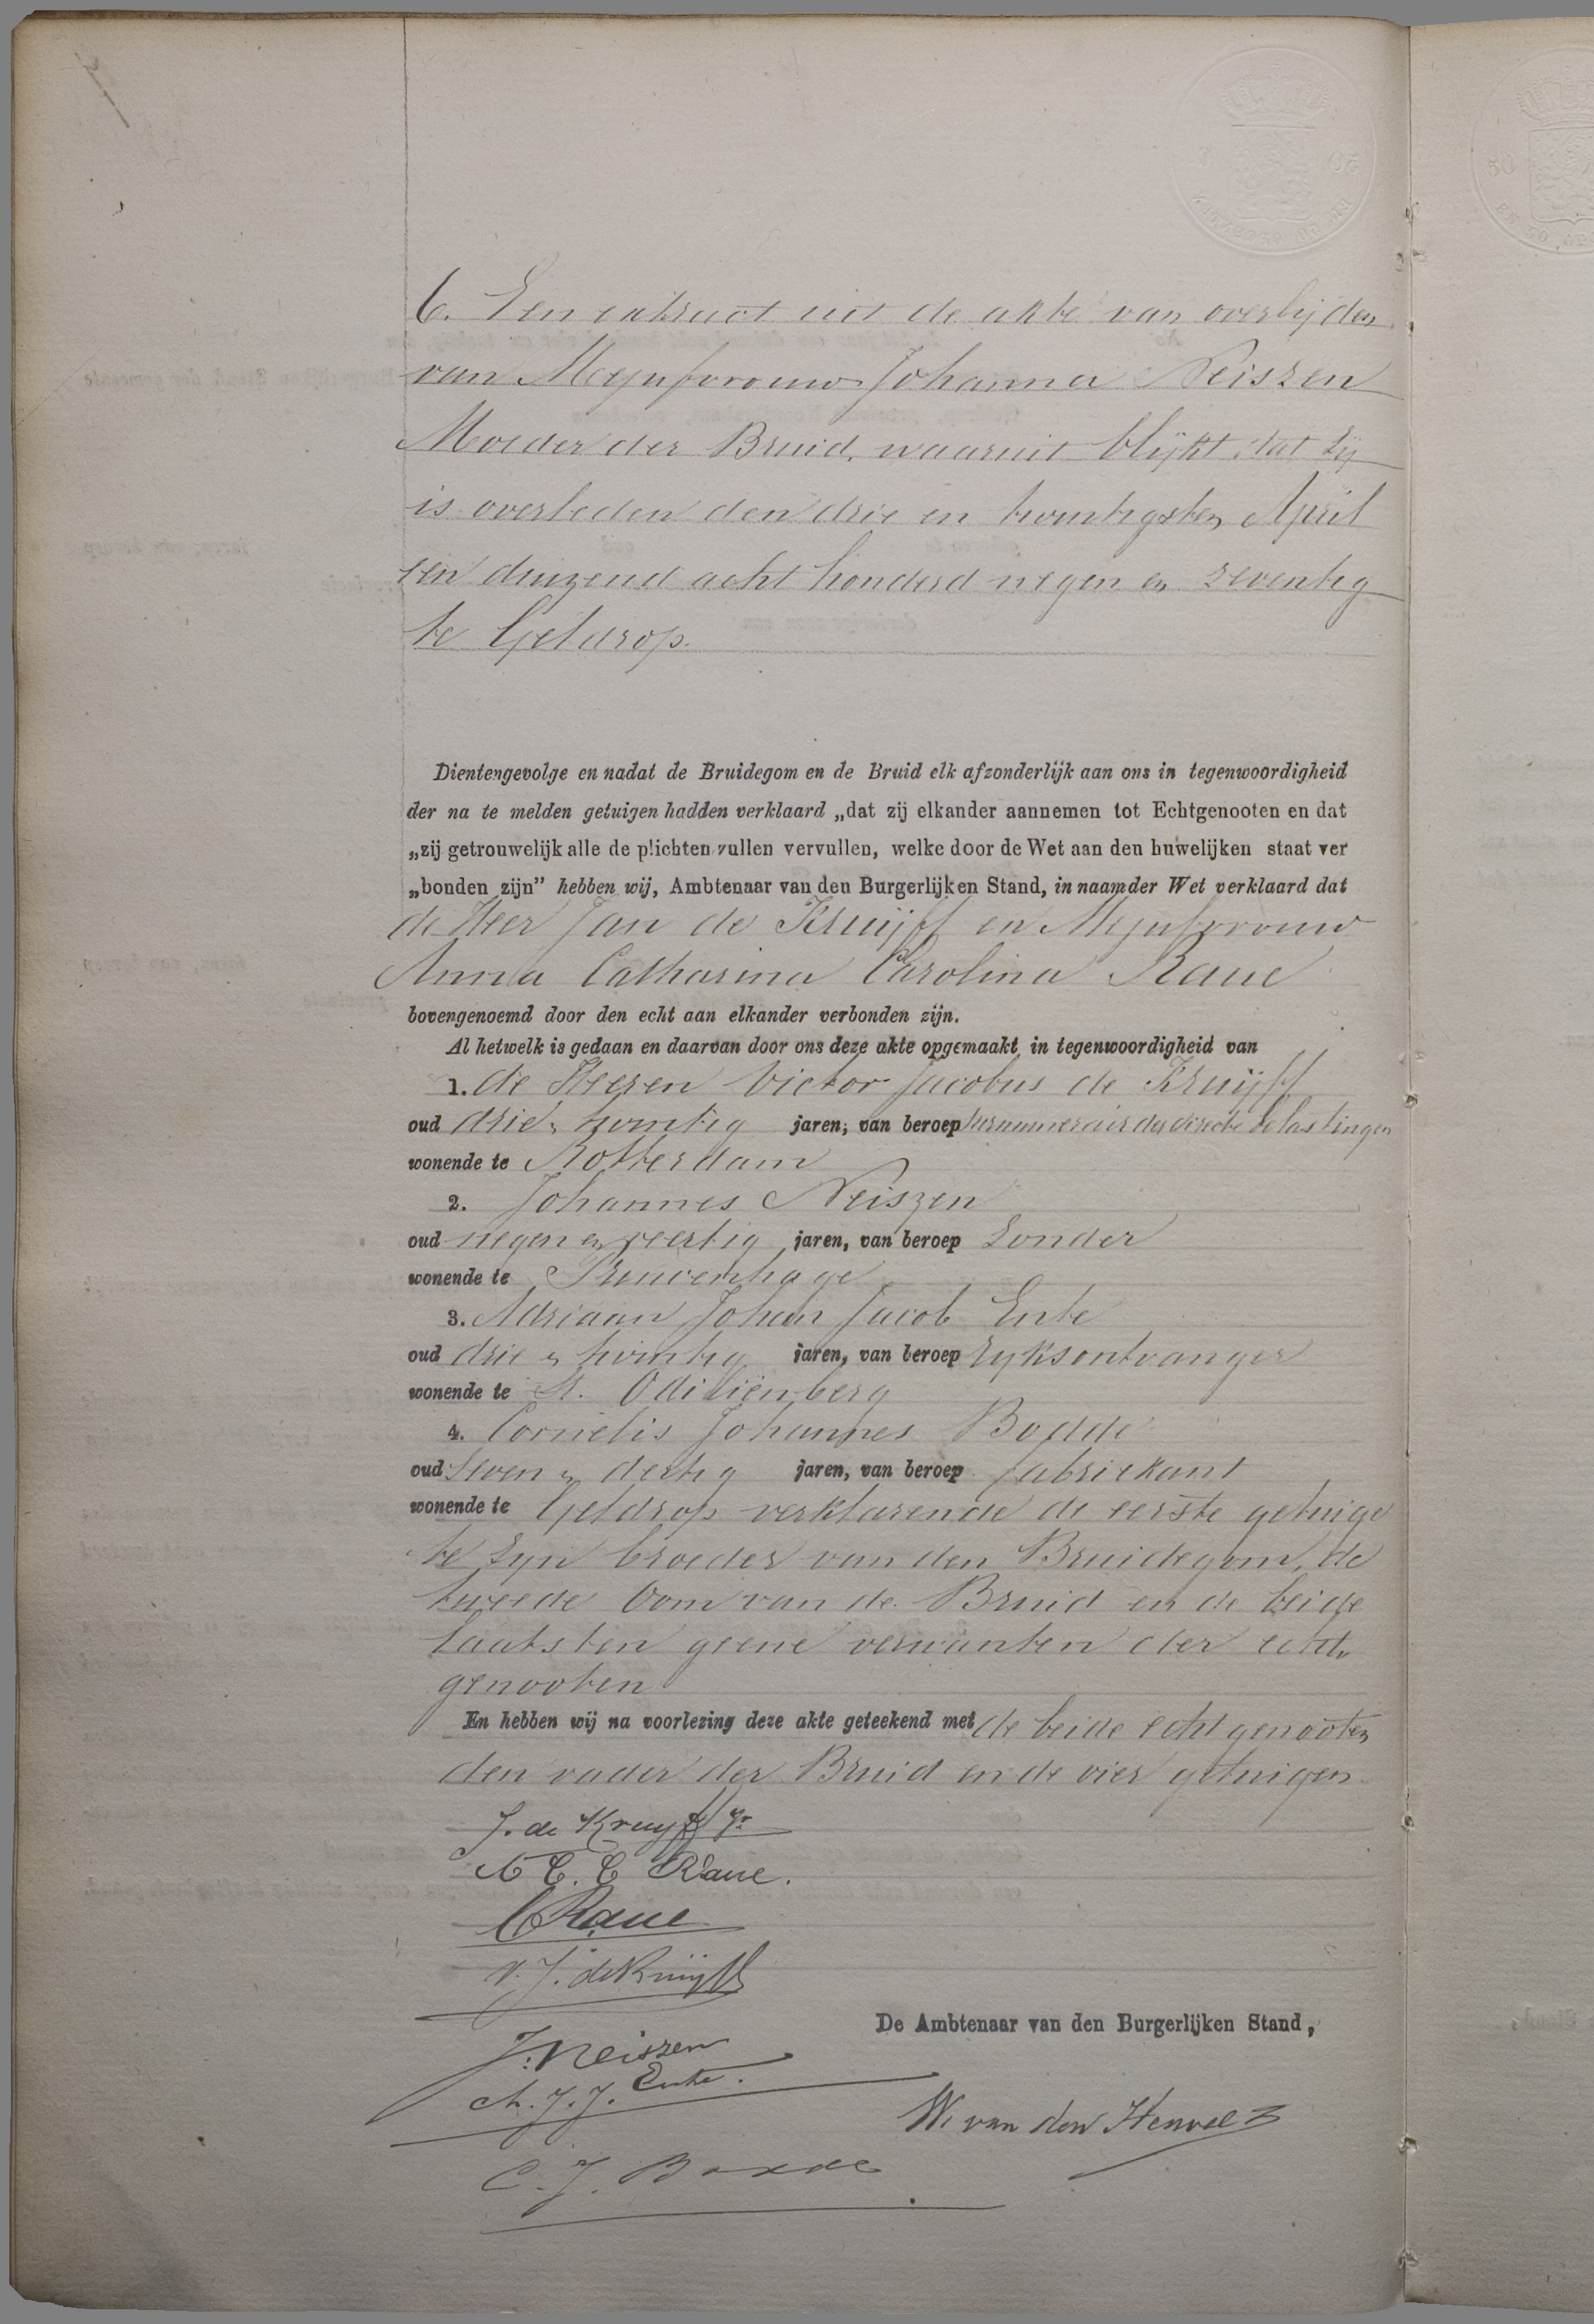 6. Een extract uit de akte van overlijden
van Mejufvrouw Johanna Neiszen
Moeder der Bruid, waaruit blijkt dat zij
is overleden den drie en twintigsten April
een duizend acht honderd negen en zeventig
te Geldrop.
Dientengevolge en nadat de Bruidegom en de Bruid elk afzonderlijk aan ons in tegenwoordigheid
der na te melden getuigen hadden verklaard „dat zij elkander aannemen tot Echtgenooten en dat
„zij getrouwelijk alle de plichten zullen vervullen, welke door de Wet aan den huwelijken staat ver
„bonden zijn” hebben wij, Ambtenaar van den Burgerlijken Stand, in naam der Wet verklaard dat
de Heer Jan de Kruijff en Mejufvrouw
Anna Catharina Carolina Raue
bovengenoemd door den echt aan elkander verbonden zijn.
Al hetwelk is gedaan en daarvan door ons deze akte opgemaakt in tegenwoordigheid van
1. de Heeren Victor Jacobus de Kruijff
oud drie en twintig jaren, van beroep surnumerair der directe belastingen
wonende te Rotterdam
2. Johannes Neiszen
oud negen en veertig jaren, van beroep zonder
wonende te Princenhage
3. Adriaan Johan Jacob Ente
oud drie en twintig jaren, van beroep rijksontvanger
wonende te St. Odiliënberg
4. Cornelis Johannes Bodde
oud zeven en dertig jaren, van beroep fabriekant
wonende te Geldrop verklarende de eerste getuige
te zijn broeder van den Bruidegom, de
tweede oom van de Bruid en de beide
laatsten geene verwanten der echt„
genooten
En hebben wij na voorlezing deze akte geteekend met de beide echtgenooten
den vader der Bruid en de vier getuigen.
J. de Kruyff Jr
A. C. C. Raue.
C Raue
V. J. de Kruijff
J. Neiszen
De Ambtenaar van den Burgerlijken Stand,
A. J. J. Ente.
W. van den Heuvel
C. J. Bodde